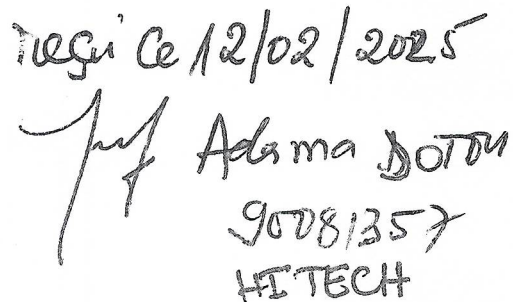 reçu ce 12/02/2025
Adama DOTOU
90081357
HITECH